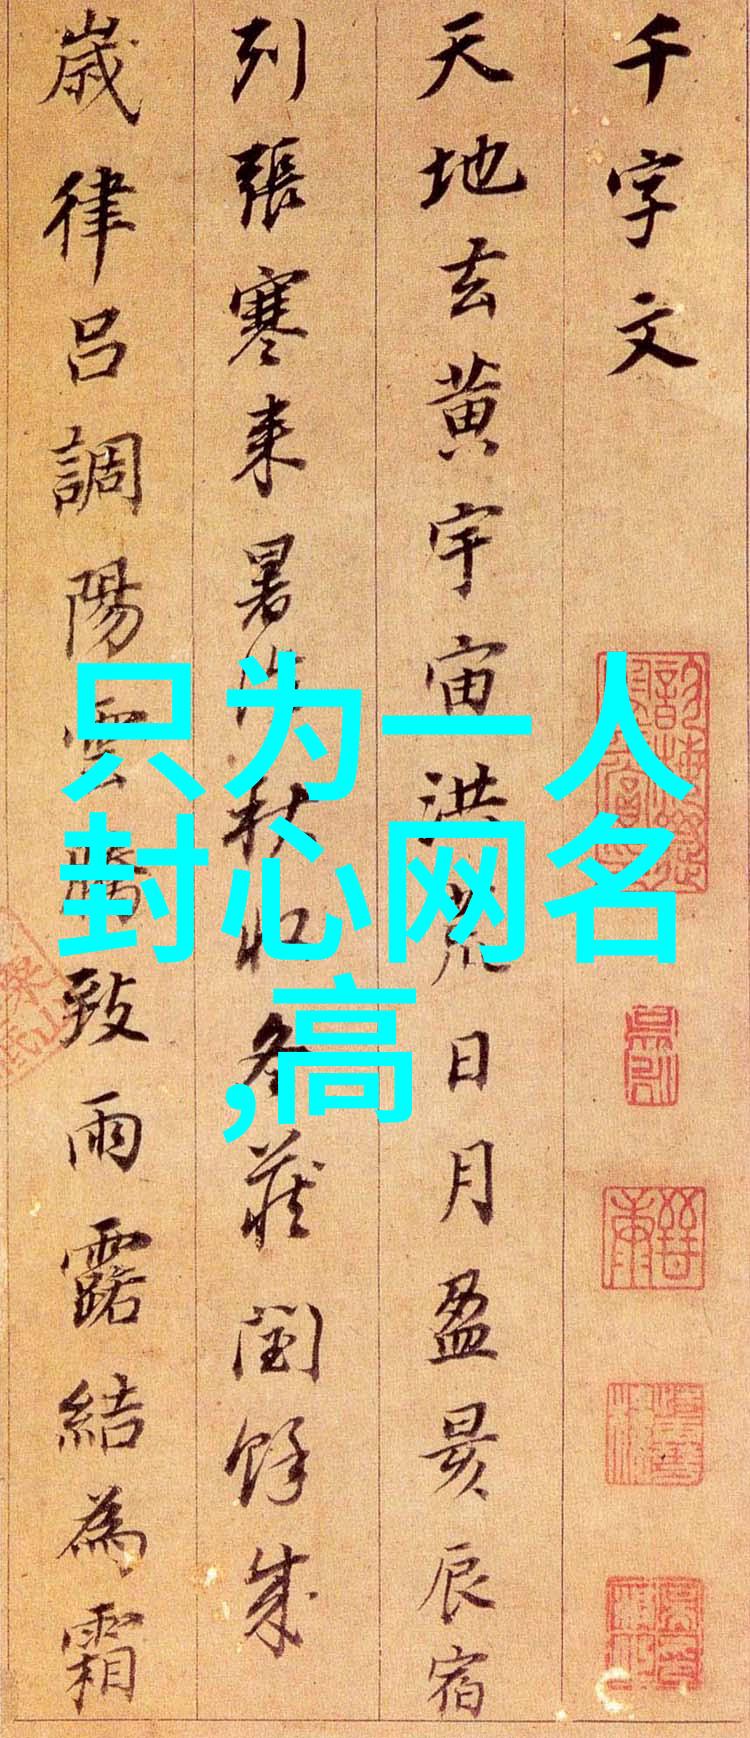 千字文
天地玄黄宇宙洪荒日月盈昃辰宿
列張寒来暑往秋收冬蔵閏餘成
歳律呂調陽雲騰致雨露結為霜
只为一人
封心网名
,高